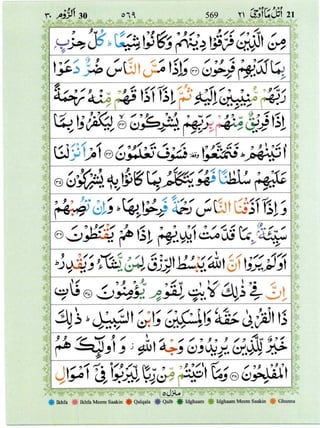 ٣٠ اَلرُّوْم 30 ٥٦٩ 569 ٢١ اُتْلُ مَاۤ اُوْحِیَ 21
مِنَ الَّذِیْنَ فَرَّقُوْا دِیْنَهُمْ وَكَانُوْا شِیَعًا ؕ كُلُّ حِزْبٍۭ
بِمَا لَدَیْهِمْ فَرِحُوْنَ ﴿۳۲﴾ وَاِذَا مَسَّ النَّاسَ ضُرٌّ دَعَوْا
رَبَّهُمْ مُّنِیْبِیْنَ اِلَیْهِ ثُمَّ اِذَاۤ اَذَاقَهُمْ مِّنْهُ رَحْمَةً
اِذَا فَرِیْقٌ مِّنْهُمْ بِرَبِّهِمْ یُشْرِكُوْنَ ﴿۳۳﴾ لِیَكْفُرُوْا بِمَاۤ
اٰتَیْنٰهُمْ ؕ فَتَمَتَّعُوْا ٙ فَسَوْفَ تَعْلَمُوْنَ ﴿۳۴﴾ اَمْ اَنْزَلْنَا
عَلَیْهِمْ سُلْطٰنًا فَهُوَ یَتَكَلَّمُ بِمَا كَانُوْا بِهٖ یُشْرِكُوْنَ ﴿۳۵﴾
وَاِذَاۤ اَذَقْنَا النَّاسَ رَحْمَةً فَرِحُوْا بِهَا ؕ وَاِنْ تُصِبْهُمْ
سَیِّئَةٌۢ بِمَا قَدَّمَتْ اَیْدِیْهِمْ اِذَا هُمْ یَقْنَطُوْنَ ﴿۳۶﴾
اَوَلَمْ یَرَوْا اَنَّ اللّٰهَ یَبْسُطُ الرِّزْقَ لِمَنْ یَّشَآءُ وَیَقْدِرُ ؕ
اِنَّ فِیْ ذٰلِكَ لَاٰیٰتٍ لِّقَوْمٍ یُّؤْمِنُوْنَ ﴿۳۷﴾ فَاٰتِ
ذَا الْقُرْبٰى حَقَّهٗ وَالْمِسْكِیْنَ وَابْنَ السَّبِیْلِ ؕ ذٰلِكَ
خَیْرٌ لِّلَّذِیْنَ یُرِیْدُوْنَ وَجْهَ اللّٰهِ ؗ وَاُولٰٓئِكَ هُمُ
الْمُفْلِحُوْنَ ﴿۳۸﴾ وَمَاۤ اٰتَیْتُمْ مِّنْ رِّبًا لِّیَرْبُوَا۠ فِیْۤ اَمْوَالِ
منزل ٥
Ikhfa Ikhfa Meem Saakin Qalqala Qalb Idghaam Idghaam Meem Saakin Ghunna